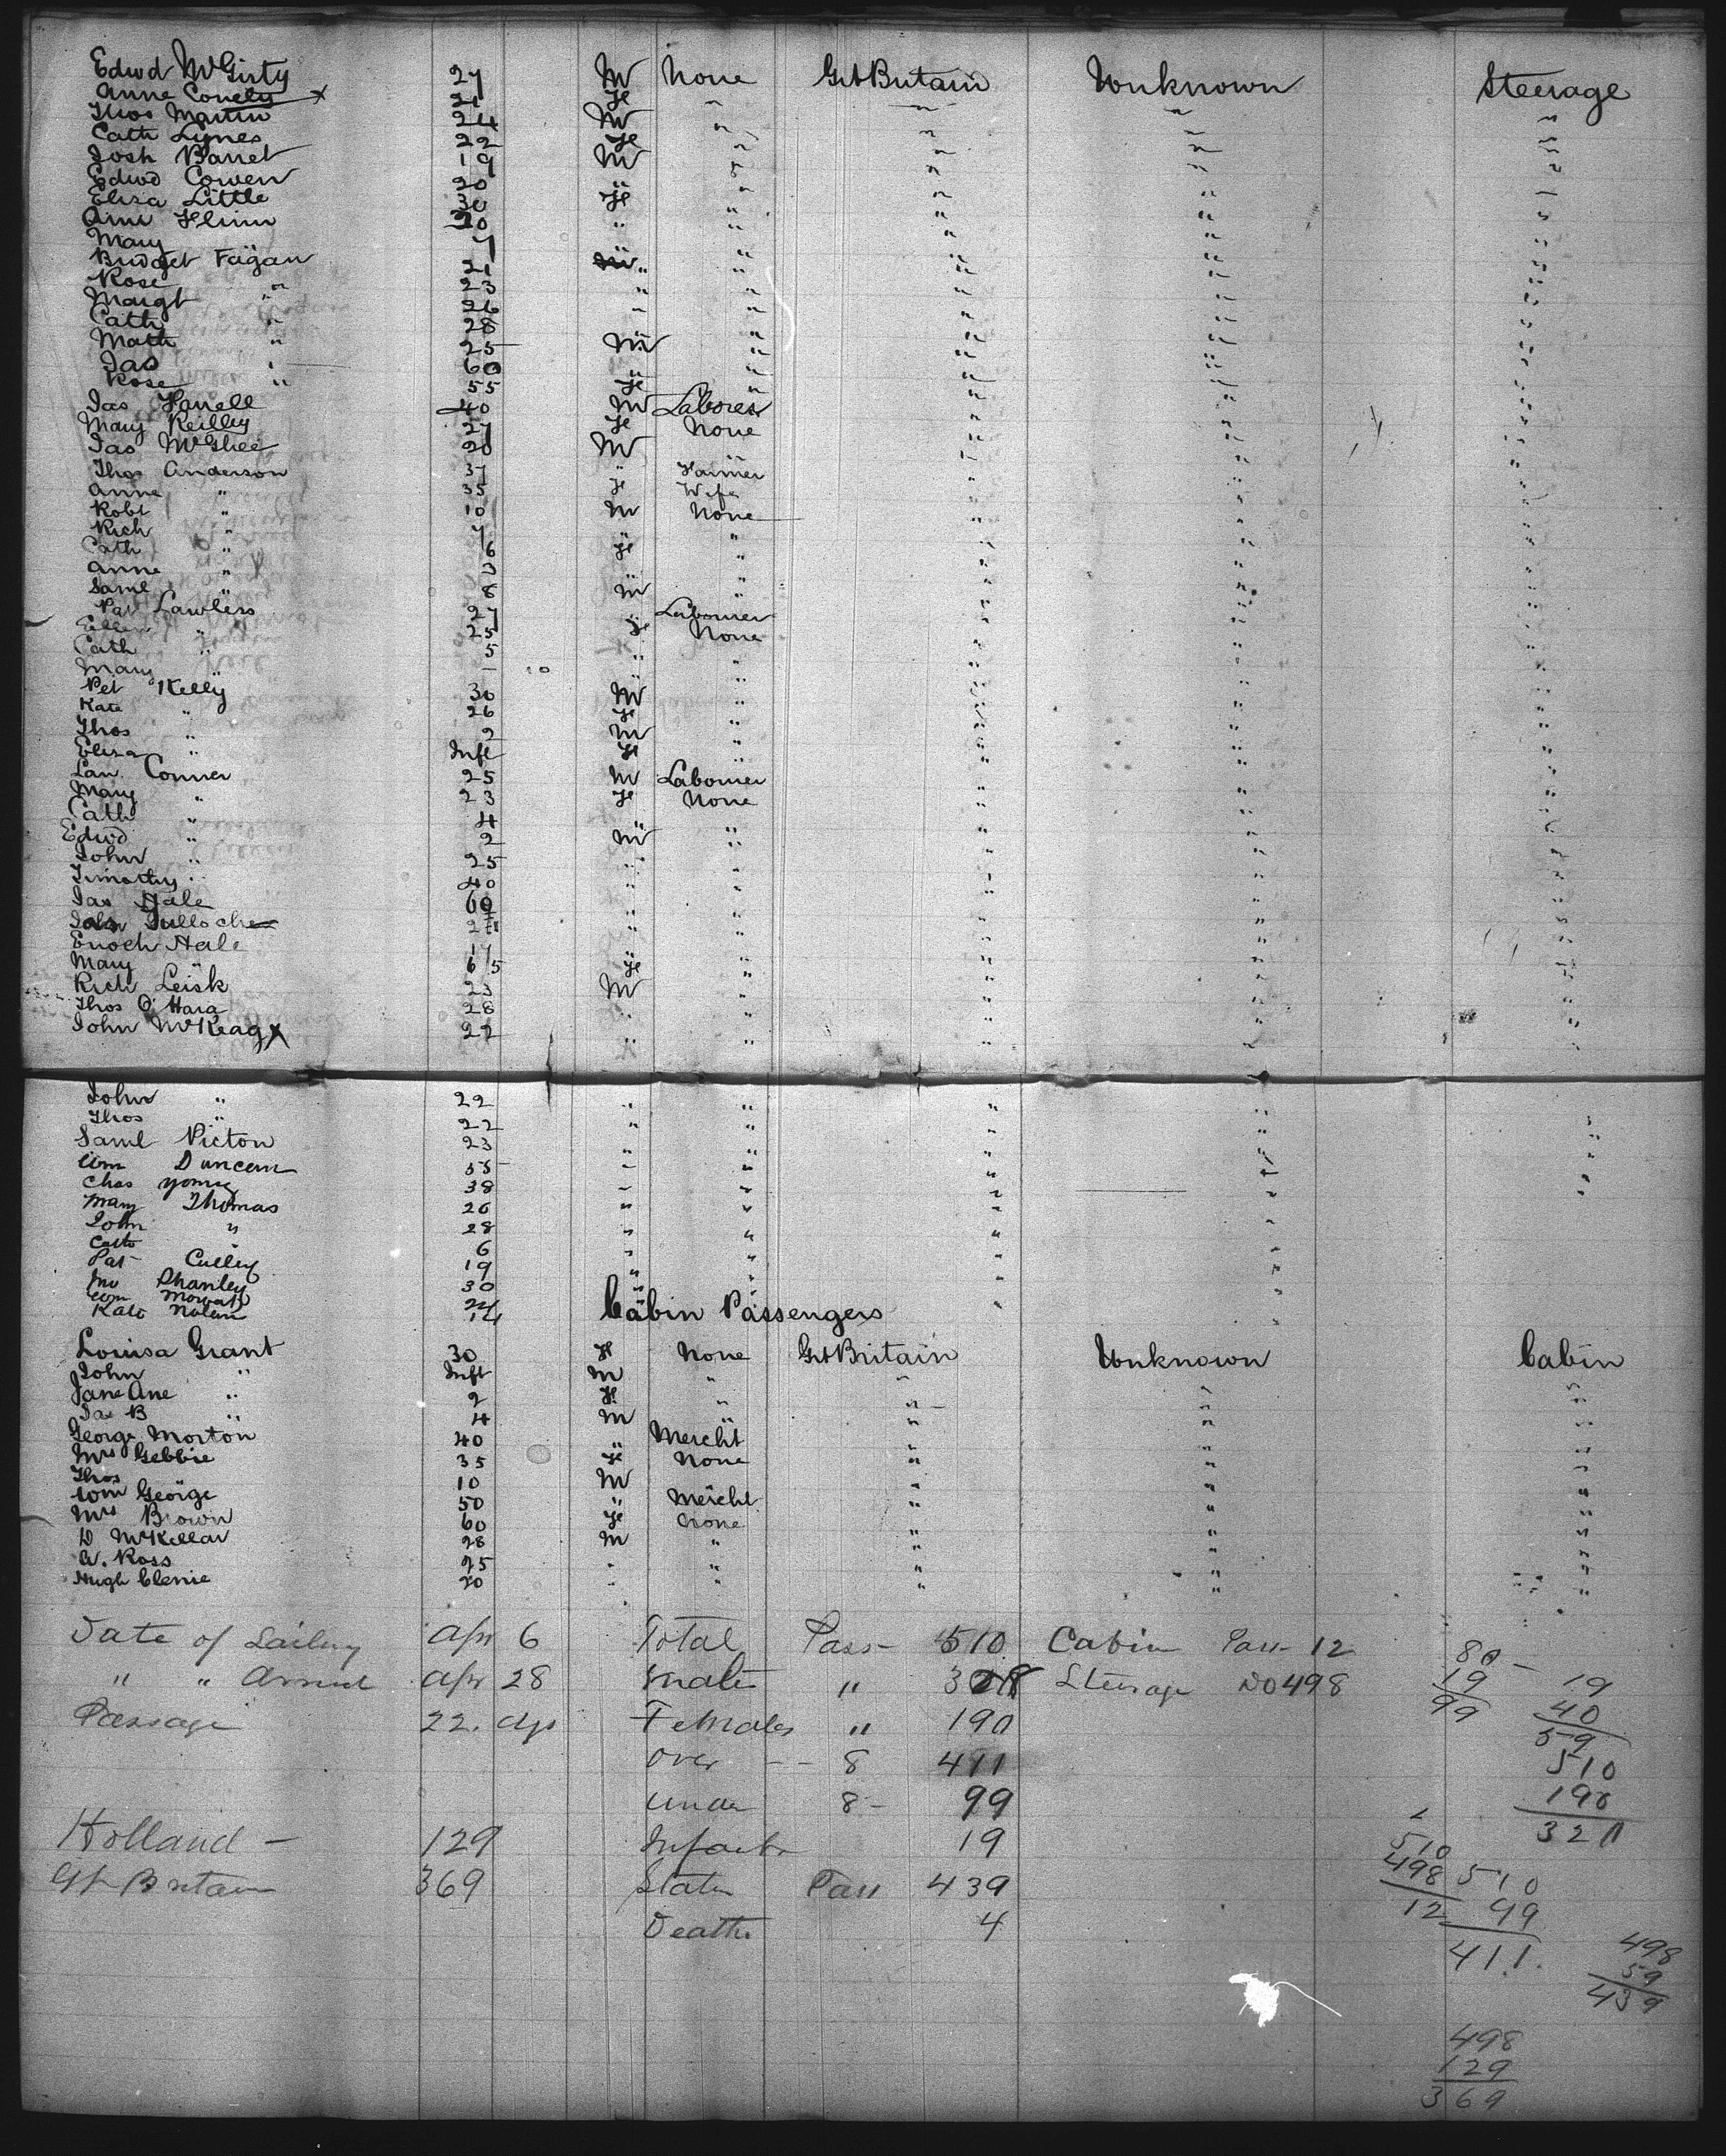 Edwd McGirty 27 M None Gt Britain Unknown Steerage
Anne Conely x 21 Fe " " " "
Thos Martin 24 M " " " "
Cath Lynes 22 Fe " " " "
Josh Barret 19 M " " " "
Edwd Cowen 20 " " " " "
Eliza Little 30 Fe " " " "
Anne Flinn 20 " " " " "
Mary
Bridget Fagan 21 " " " " "
Rose " 23 " " " " "
Margt " 26 " " " " "
Cath " 28 " " " " "
Math " 25 M " " " "
Jas " 60 " " " " "
Rose " 55 Fe " " " "
Jas Farrell 40 M Laborer " " "
Mary Reilley 27 Fe None " " "
Jas McGhee 20 M " " " "
Thos Anderson 37 " Farmer " " "
Anne " 35 Fe Wife " " "
Robt " 10 M None " " "
Rich " 7 " " " " "
Cath " 6 Fe " " " "
Anne " " " " " "
Saml " M " " " "
Pat Lawlers 27 " Labourer " " "
Ellen " 25 Fe None " " "
Cath " 5 " " " " "
Mary " " " " " "
Pet Kelly 30 M " " " "
Kate " 26 Fe " " " "
Thos " 2 M " " " "
Eliza " Inft Fe " " " "
Law Conner 25 M Labourer " " "
Mary " 23 Fe None " " "
Cath " 4 " " " " "
Edwd " 2 M " " " "
John " 25 " " " " "
Timothy " 40 " " " " "
Jas Hale 60 " " " " "
John " " " " "
Enoch Hale 17 " " " " "
Mary " 65 Fe " " " "
Rich Leisk 23 M " " " "
Thos O'Hara 28 " " " " "
John McKeag x 22 " " " " "
John " 22 " " " " "
Thos " 22 " " " " "
Saml Picton 23 " " " " "
Wm Duncan 55 " " " " "
Chas Young 38 " " " " "
Mary Thomas 26 " " " "
John " 28 " " " "
Cath " 6 " " " "
Pat Culley 19 " " " "
30 " "
Wm
Kate Nolan 14
Cabin Passengers
Louisa Grant 30 Fe None Gt Britain Unknown Cabin
John " Inft M " " " "
Jane Ane " 2 Fe " " " "
Jas B " 4 M " " " "
George Morton 40 " Mercht " " "
Mrs Gebbie 35 Fe None " " "
Thos " 10 M " " " "
Wm George 50 " Mercht " " "
Mrs Brown 60 Fe None " " "
D McKellar 28 M " " " "
A. Ross 25 " " " " "
Hugh Clenie 20 " " " " "
Date of Sailing Apr 6 Total Pass - 510 Cabin Pass 12
" " Arrival Apr 28 Male " Steerage Do 498
Passage 22. dys Females " 190
Over -- 8 411
Under 8 - 99
Holland - 129 Infants 19
Gt Britain 369 States Pass 439
Deaths 4
80
19
99
19
40
59
510
190
320
510
498
12
510
99
411
498
59
439
498
129
369